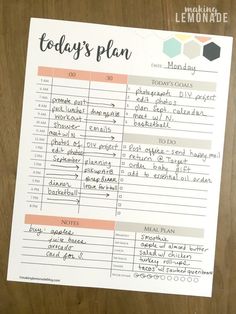 making
LEMONADE
today's plan
DATE Monday
00 30
TODAY'S GOALS
photograph DIY project
edit photos
plan Sept. calendar
meet w/ N.
basketball
5 AM
6 AM
7 AM promote post
8 AM pack lunches
9 AM workout
10 AM shower emails
11 AM meet w/ N
12 PM photos of DIY project
1 PM edit photos
2 PM September planning
3 PM pick up kids
4 PM
5 PM dinner leave for bball
6 PM basketball
7 PM
8 PM
TO DO
Post office - send happy mail
return @ Target
order baby gift
add to essential oil order
NOTES
buy: apples
juice boxes
avocado
card for J.
MEAL PLAN
smoothie
apple w/ almond butter
salad w/ chicken
turkey roll-ups
tacos w/ sauteed green beans
©makinglemonadeblog.com